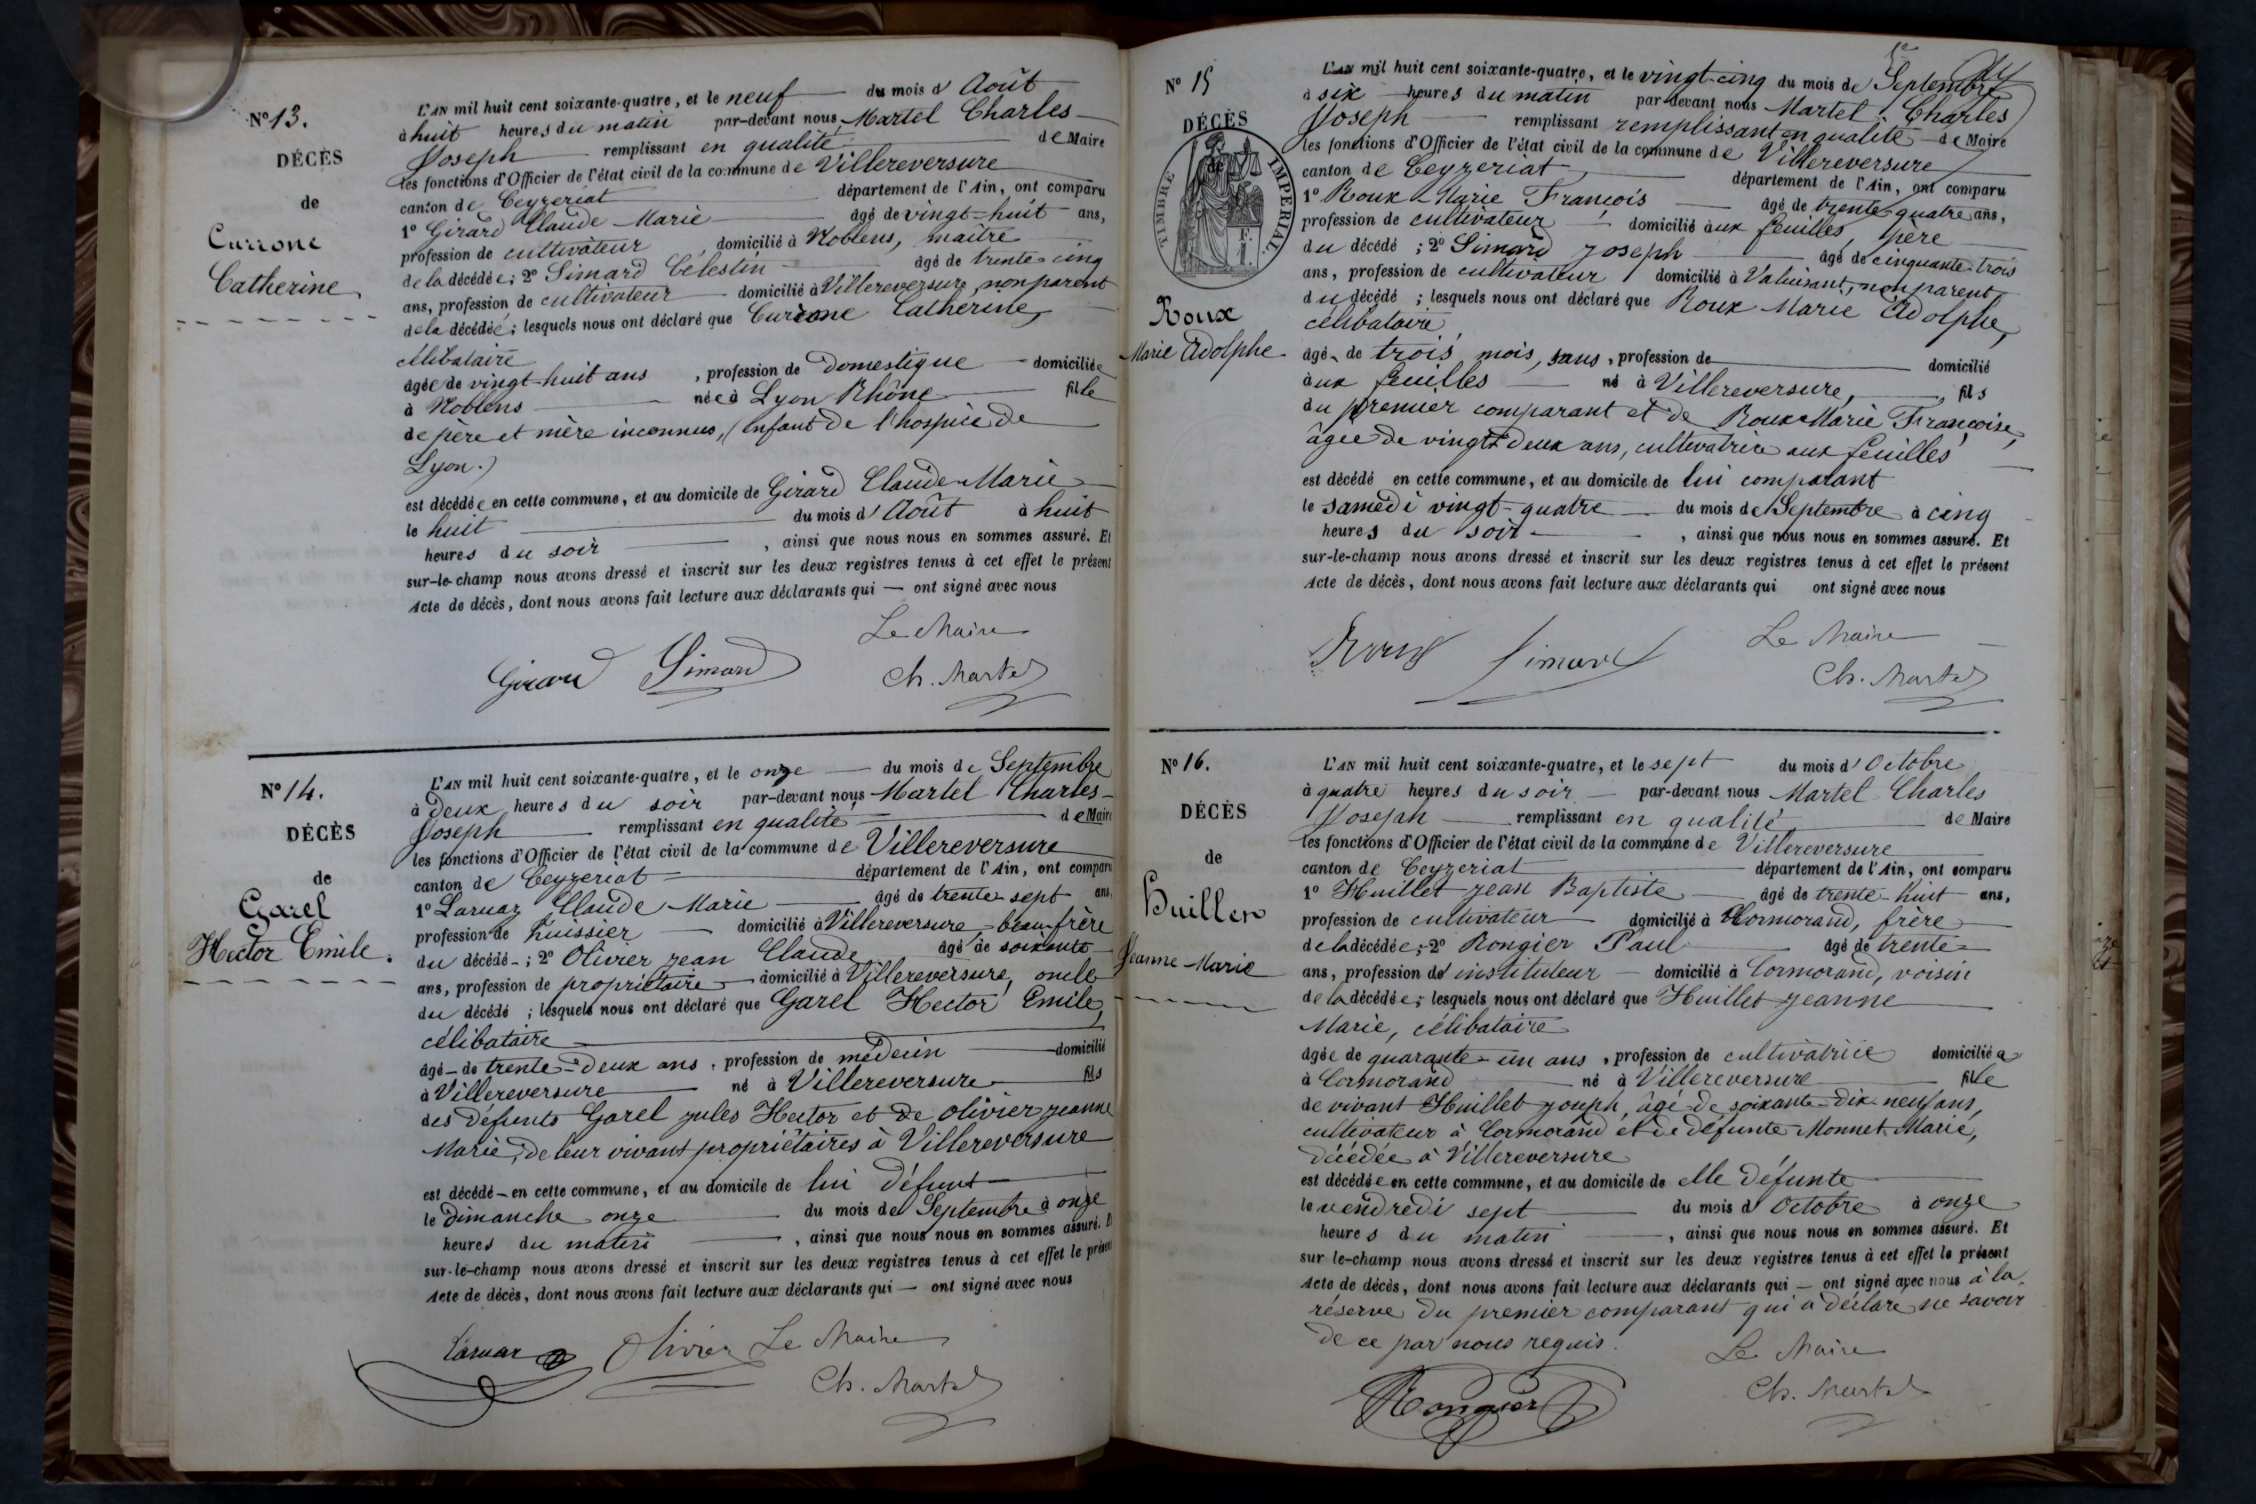 Nº 13.
DÉCÈS
de
Currone
Catherine
L'AN mil huit cent soixante-quatre, et le neuf du mois d' Août
à huit heures du matin par-devant nous Martel Charles
Joseph remplissant en qualité de Maire
les fonctions d'Officier de l'état civil de la commune de Villereversure
canton de Ceyzeriat département de l'Ain, ont comparu
1º Girard Claude Marie âgé de vingt-huit ans,
profession de cultivateur, domicilié à Noblens, maître
de la décédée; 2º Simard Célestin âgé de trente-cinq
ans, profession de cultivateur domicilié à Villereversure, non parent
de la décédée; lesquels nous ont déclaré que Currone Catherine,
célibataire
âgée de vingt-huit ans, profession de Domestique domiciliée
à Noblens née à Lyon Rhône fille
de père et mère inconnus, (Enfant de l'hospice de
Lyon.)
est décédée en cette commune, et au domicile de Girard Claude-Marie
le huit du mois d' Août à huit
heures du soir, ainsi que nous nous en sommes assuré. Et
sur-le-champ nous avons dressé et inscrit sur les deux registres tenus à cet effet le présent
Acte de décès, dont nous avons fait lecture aux déclarants qui — ont signé avec nous
Le Maire
Girard Simard Ch. Martel
Nº 14.
DÉCÈS
de
Garel
Hector Emile.
L'AN mil huit cent soixante-quatre, et le onze du mois de Septembre
à deux heures du soir par-devant nous Martel Charles-
Joseph remplissant en qualité de Maire
les fonctions d'Officier de l'état civil de la commune de Villereversure
canton de Ceyzeriat département de l'Ain, ont comparu
1º Laruaz Claude Marie âgé de trente-sept ans,
profession de huissier domicilié à Villereversure, beau-frère
du décédé; 2º Olivier Jean Claude âgé de soixante
ans, profession de propriétaire domicilié à Villereversure, oncle
du décédé; lesquels nous ont déclaré que Garel Hector Emile,
célibataire
âgé de trente-deux ans, profession de médecin domicilié
à Villereversure né à Villereversure fils
des défunts Garel Jules Hector et de Olivier Jeanne
Marie, de leur vivant propriétaires à Villereversure
est décédé en cette commune, et au domicile de lui défunt
le dimanche onze du mois de Septembre à onze
heures du matin, ainsi que nous nous en sommes assuré. Et
sur-le-champ nous avons dressé et inscrit sur les deux registres tenus à cet effet le présent
Acte de décès, dont nous avons fait lecture aux déclarants qui — ont signé avec nous
Laruaz Olivier Le Maire
Ch. Martel
Nº 15
DÉCÈS
de
TIMBRE IMPÉRIAL
Roux
Marie Adolphe
L'AN mil huit cent soixante-quatre, et le vingt-cinq du mois de Septembre
à six heures du matin par-devant nous Martel Charles
Joseph remplissant remplissant en qualité de Maire
les fonctions d'Officier de l'état civil de la commune de Villereversure
canton de Ceyzeriat département de l'Ain, ont comparu
1º Roux Marie François âgé de trente-quatre ans,
profession de cultivateur domicilié aux feuilles, père
du décédé; 2º Simard Joseph âgé de cinquante-trois
ans, profession de cultivateur domicilié à Valuisant, non parent
du décédé; lesquels nous ont déclaré que Roux Marie Adolphe,
célibataire
âgé de trois mois, sans, profession de domicilié
aux feuilles né à Villereversure, fils
du premier comparant et de Roux Marie Françoise,
âgée de vingt-deux ans, cultivatrice aux feuilles
est décédé en cette commune, et au domicile de lui comparant
le samedi vingt-quatre du mois de Septembre à cinq
heures du soir, ainsi que nous nous en sommes assuré. Et
sur-le-champ nous avons dressé et inscrit sur les deux registres tenus à cet effet le présent
Acte de décès, dont nous avons fait lecture aux déclarants qui ont signé avec nous
Le Maire
Roux Simard Ch. Martel
Nº 16.
DÉCÈS
de
Huillet
Jeanne-Marie
L'AN mil huit cent soixante-quatre, et le sept du mois d' Octobre
à quatre heures du soir par-devant nous Martel Charles
Joseph remplissant en qualité de Maire
les fonctions d'Officier de l'état civil de la commune de Villereversure
canton de Ceyzeriat département de l'Ain, ont comparu
1º Huillet Jean Baptiste âgé de trente-huit ans,
profession de cultivateur domicilié à Cormorand, frère
de la décédée; 2º Rongier Paul âgé de trente
ans, profession d' instituteur domicilié à Cormorand, voisin
de la décédée; lesquels nous ont déclaré que Huillet Jeanne
Marie, célibataire
âgée de quarante-un ans, profession de cultivatrice domiciliée
à Cormorand né à Villereversure fille
de vivant Huillet Joseph, âgé de soixante-dix-neuf ans,
cultivateur à Cormorand et de défunte Monnet Marie,
décédée à Villereversure
est décédée en cette commune, et au domicile de elle défunte
le vendredi sept du mois d' Octobre à onze
heures du matin, ainsi que nous nous en sommes assuré. Et
sur-le-champ nous avons dressé et inscrit sur les deux registres tenus à cet effet le présent
Acte de décès, dont nous avons fait lecture aux déclarants qui — ont signé avec nous à la
réserve du premier comparant qui a déclaré ne savoir
de ce par nous requis.
Le Maire
Rongier Ch. Martel